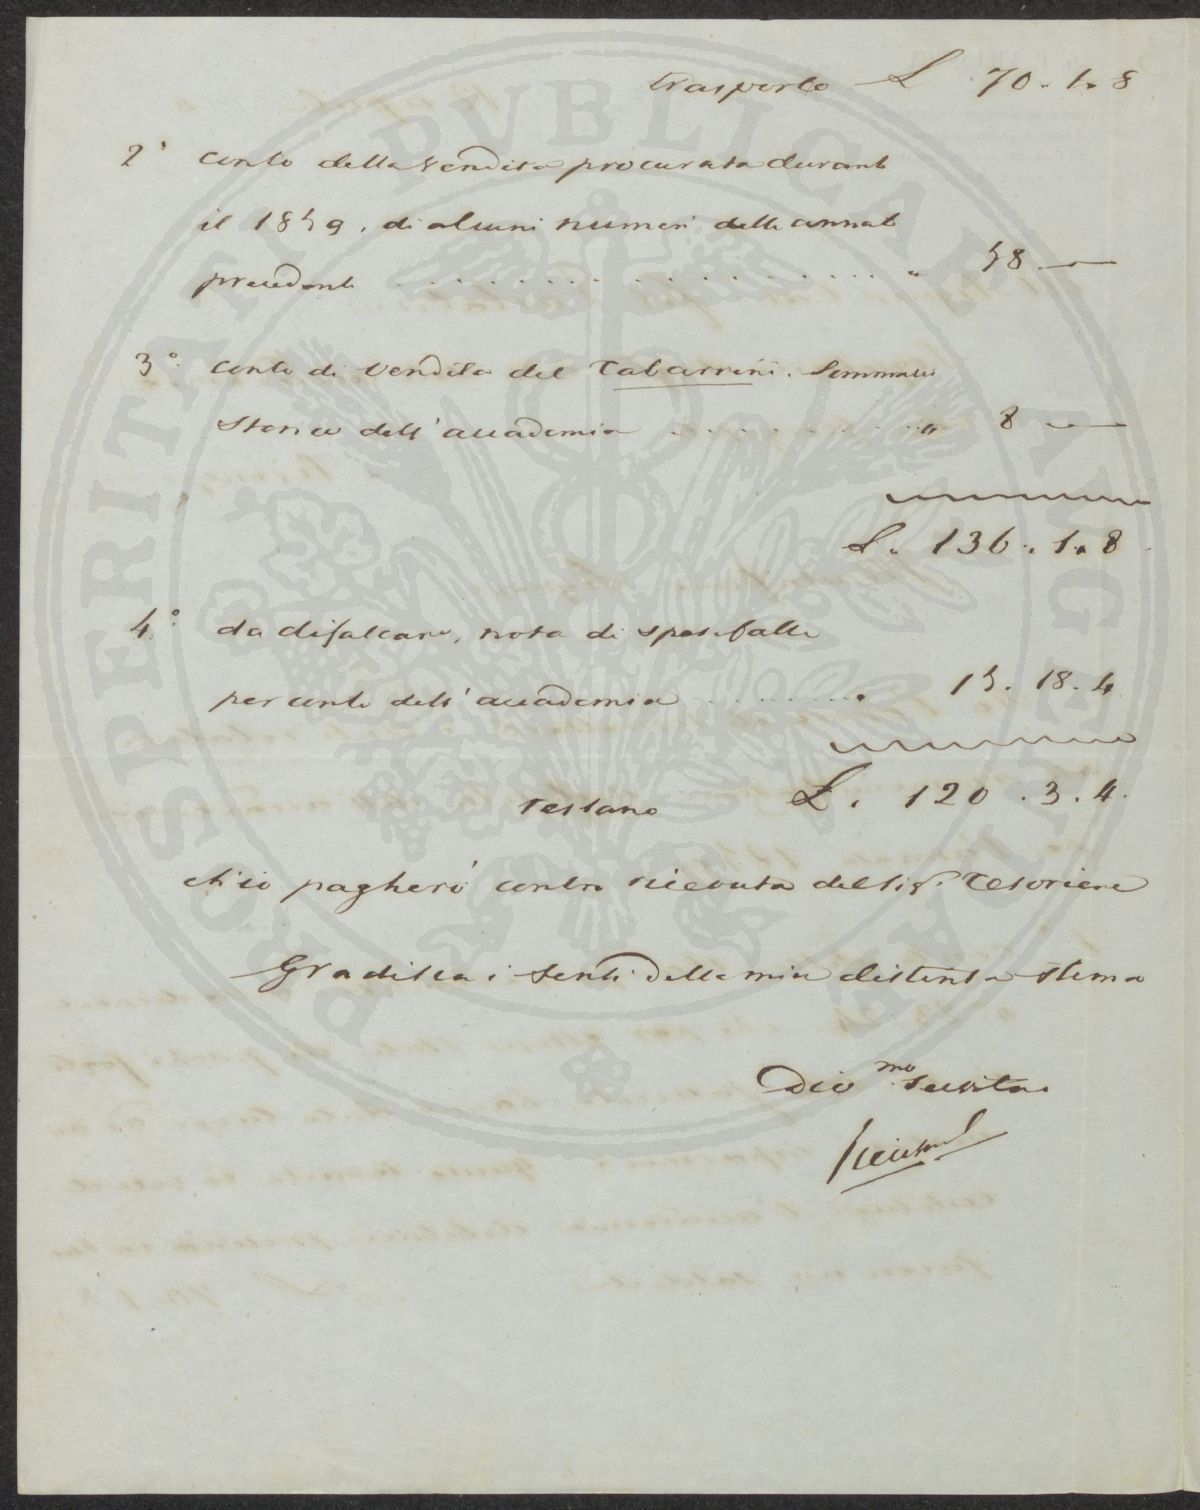 trasporto £ 70. 1. 8
2° conto della vendita procurata durante
il 1859, di alcuni numeri delle annate
precedenti . . . . . . . . . . . . . . . . . . " 58 —
3° conto di vendita del Tabarrini. Sommario
storico dell'accademia . . . . . . . . . . " 8 —
£. 136. 1. 8
4° da difalcare, nota di spese fatte
per conto dell'accademia . . . . . . . . 15. 18. 4
restano £. 120. 3. 4.
ch'io pagherò contro ricevuta del Sigr. Tesoriere
Gradisca i sensi della mia distinta stima
Devmo
PROSPERITATI PVBLICAE AVGENDAE